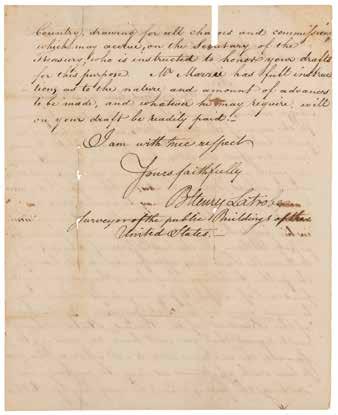 Country, drawing for all charges and commissions
which may accrue, on the Secretary of the
Treasury, who is instructed to honor your drafts
for this purpose. Mr Morris has full instruc
tions as to the nature and amount of advances
to be made, and whatever he may require, will
on your draft be readily paid.—
I am with true respect
Yours faithfully
B Henry Latrobe
Surveyor of the public Buildings of the
United States.—